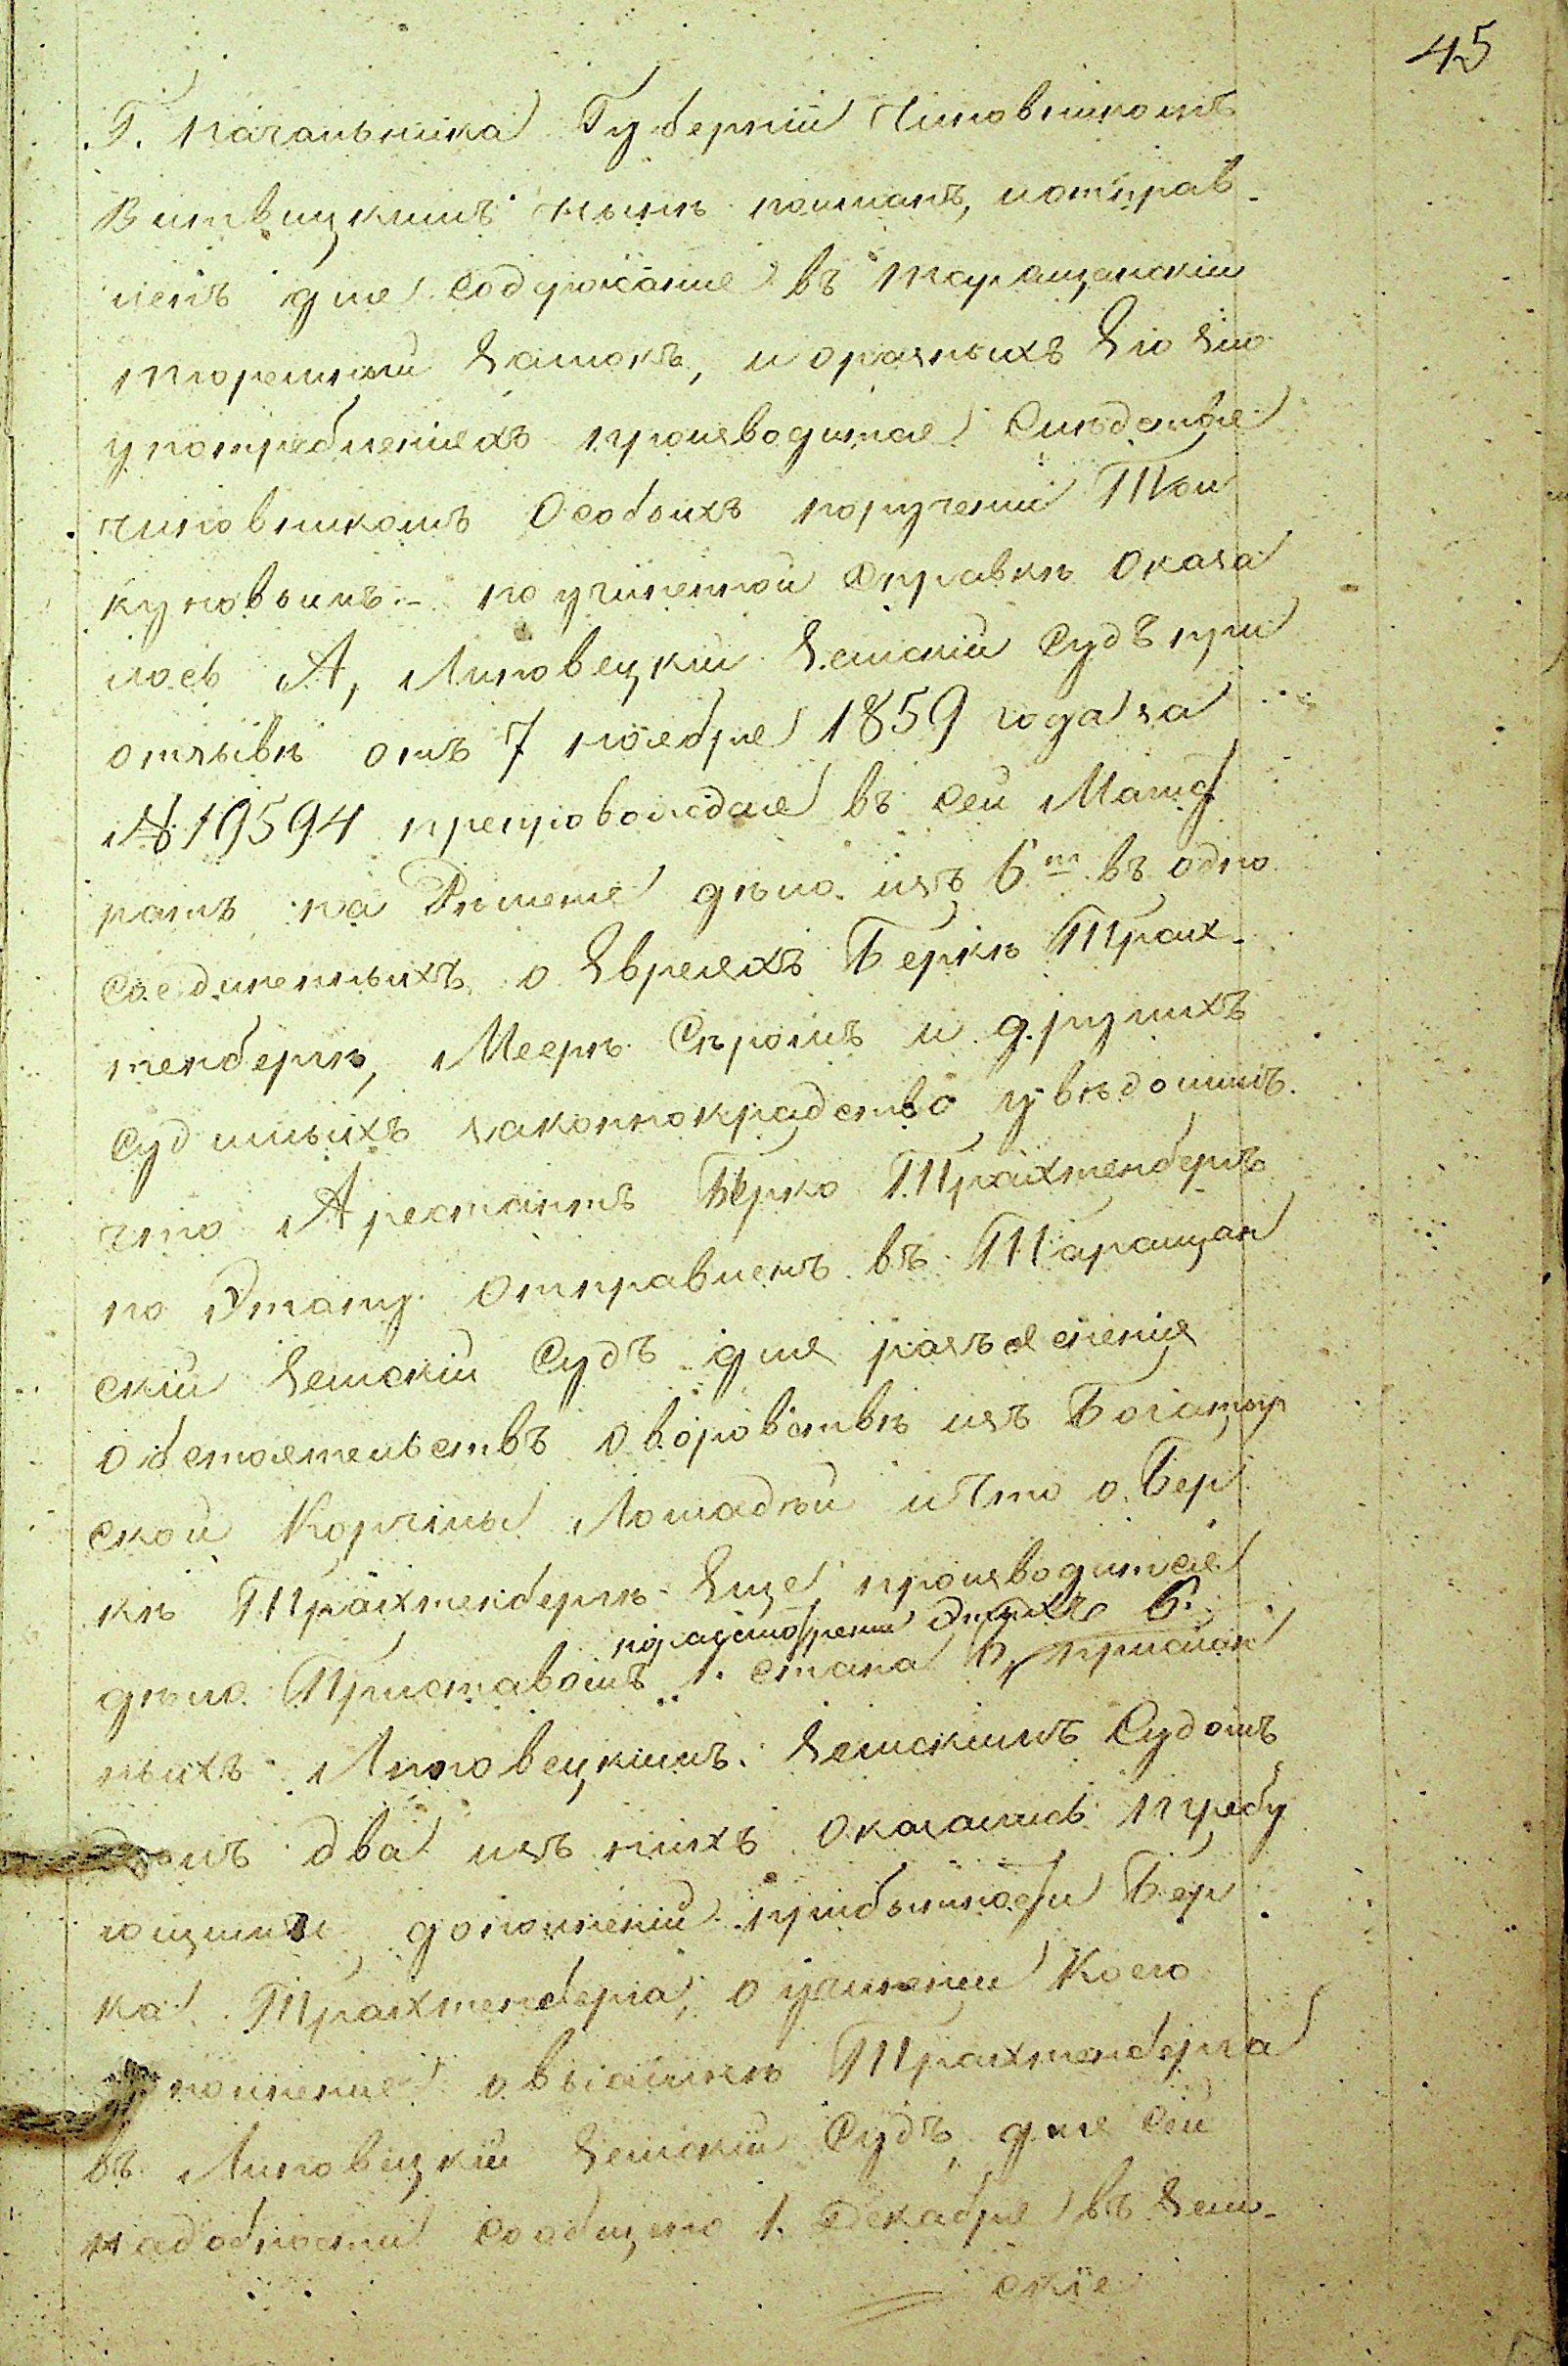 45
Г. Начальника Губерніи Чиновникомъ
Витвицкимъ нынѣ пойманъ, и отправ-
ленъ для содержанія въ Таращанскій
тюремный Замокъ, и о разныхъ Его Зло
употребленіяхъ производится Слѣдствіе
чиновникомъ Особыхъ порученій
куновымъ. – по учиненной Справкѣ Оказа
лось А, Липовецкій Земскій Судъ при
отзывѣ отъ 7 ноября 1859 года за
№ 19594 препровождая въ сей Магист
ратъ на Рѣшеніе дѣло изъ 6ти въ одно
соединенныхъ о Евреяхъ Беркѣ Трах-
тенбергѣ, Меерѣ и другихъ
судимыхъ за коннокрадство увѣдомилъ.
что Арестантъ Берко Трахтенбергъ
по Этапу Отправленъ въ Таращан
скій Земскій Судъ для разъясненія
обстоятельствъ о воровствѣ изъ Богатыр
ской Корчмы Лошадей и что о Бер
кѣ Трахтенбергѣ Еще производится
по разсмотреніи Этихъ 6.
дѣло Приставомъ 1. стана прислан
ныхъ Липовецкимъ Земскимъ Судомъ
два изъ нихъ Оказались требу
ющими дополненій прибытности Бер
ка Трахтенберга, о учиненіи Коего
полненія о высылкѣ Трахтенберга
въ Липовецкій Земскій Судъ, для сей
надобности сообщено 1. Декабря въ Зем-
скіе